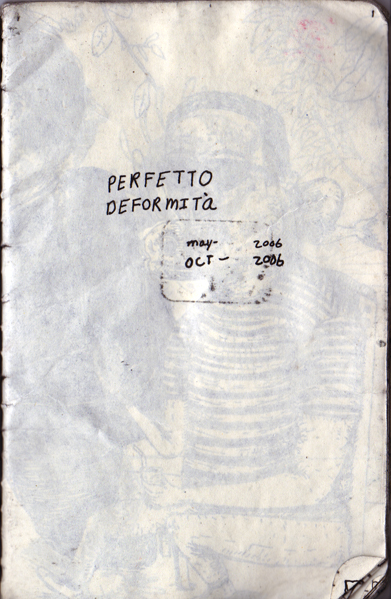 PERFETTO
DEFORMITà
may- 2006
OCT- 2006